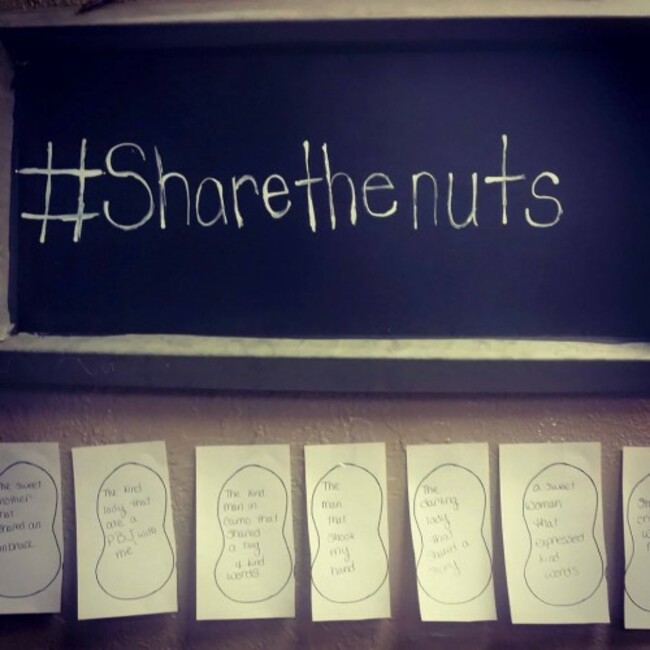 #Sharethenuts
The sweet
mother
that
shared an
embrace
The kind
lady that
ate a
PBJ with
me
The kind
man in
camo that
shared
a hug
& kind
words
The
man
that
shook
my
hand
The
darling
lady
that
a
a sweet
woman
that
expressed
kind
words